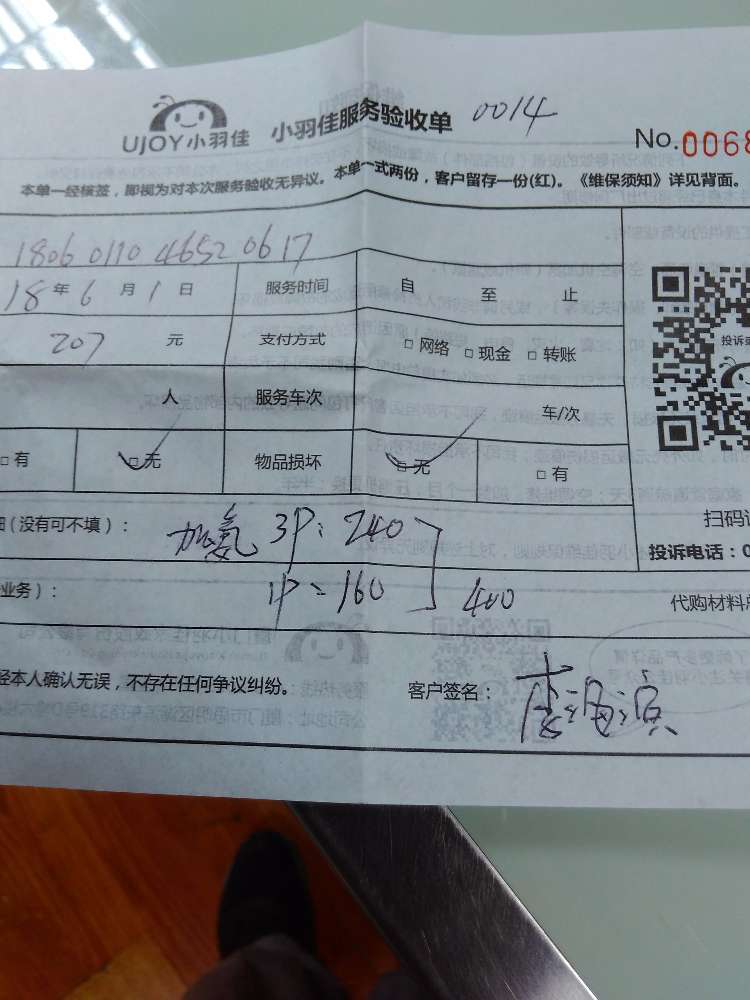 UJOY小羽佳 小羽佳服务验收单 0014
No.0068
本单一经核签，即视为对本次服务验收无异议。本单一式两份，客户留存一份(红)。《维保须知》详见背面。
1806 0110 4652 0617
18年6月1日 服务时间 自 至 止
207 元 支付方式 □网络 □现金 □转账
人 服务车次 车/次
□有 □无 物品损坏 □无 □有
(没有可不填)： 加氨 3P: 240
业务)： 1P = 160 400 代购材料
扫码
投诉电话：0
本人确认无误，不存在任何争议纠纷。 客户签名：